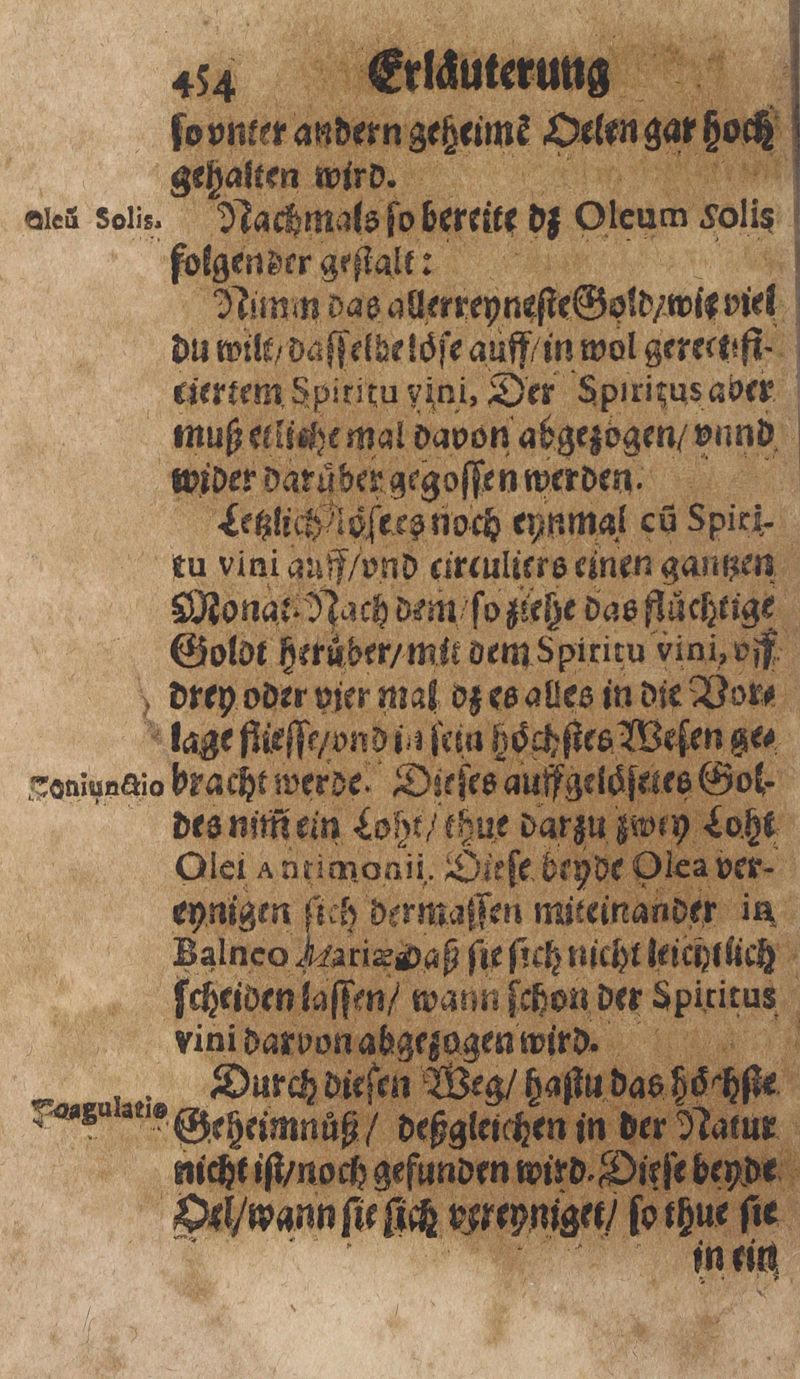 454 Erlåuterung
ſo vnter andern geheimẽ Oelen gar hoch
gehalten wird.
Oleũ Solis. Nachmals ſo bereite dz Oleum Solis
folgender geſtalt:
Nimm das allerreyneſte Gold/wie viel
du wilt/daſſelbe lôſe auff/in wol gerectifi-
ciertem Spiritu vini, Der Spiritus aber
muß etliche mal davon abgezogen/vnnd
wider darůber gegoſſen werden.
Letzlich lôſe es noch eynmal cũ Spiri-
tu vini auff/vnd circuliers einen gantzen
Monat. Nach dem/ſo ziehe das flůchtige
Goldt herůber/mit dem Spiritu vini, vff
drey oder vier mal dz es alles in die Vor-
lage flieſſe/vnd in ſein hôchſtes Weſen ge-
Coniunctio bracht werde. Dieſes auffgelôſetes Gol-
des nim̃ ein Loht/thue darzu zwey Loht
Olei Antimonii. Dieſe beyde Olea ver-
eynigen ſich dermaſſen miteinander in
Balneo Mariæ daß ſie ſich nicht leichtlich
ſcheiden laſſen/ wann ſchon der Spiritus
vini darvon abgezogen wird.
Durch dieſen Weg/ haſtu das hôchſte
Coagulatio Geheimnůß/ deßgleichen in der Natur
nicht iſt/noch gefunden wird. Dieſe beyde
Oel/wann ſie ſich vereyniget/ ſo thue ſie
in ein